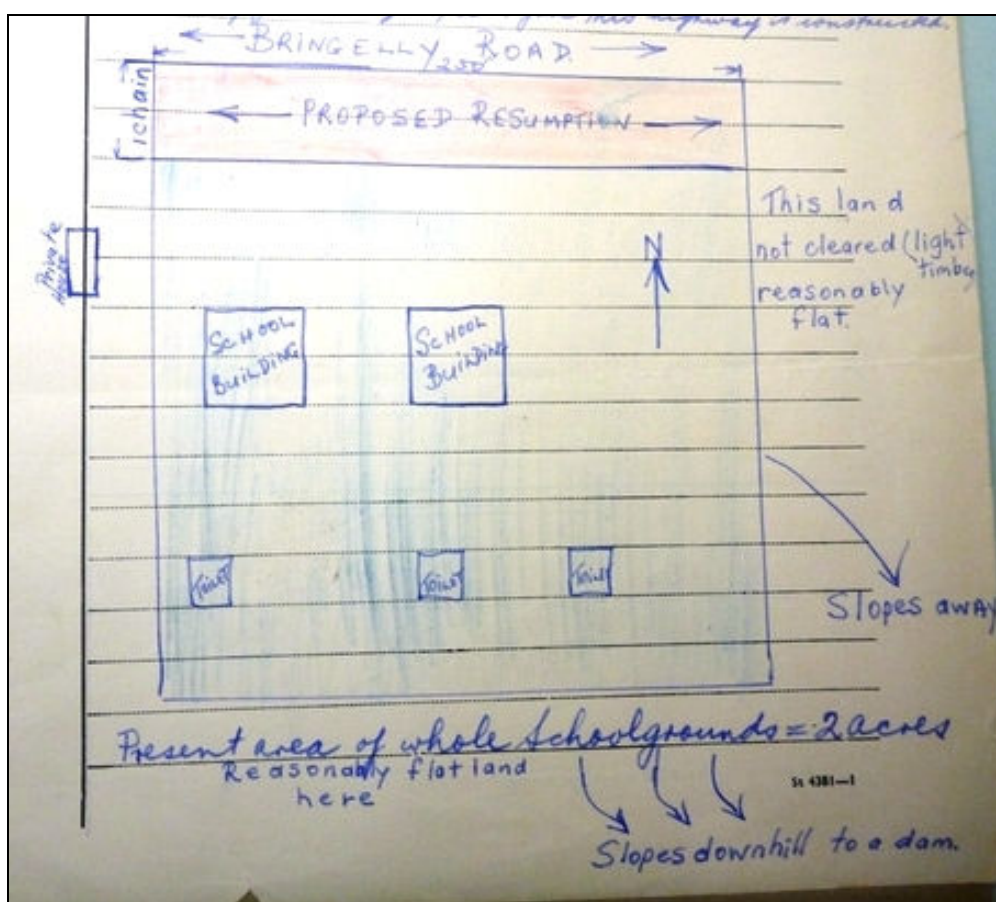 this highway is constructed.
BRINGELLY ROAD.
250
1 chain
PROPOSED RESUMPTION
This land
not cleared (light
timber
reasonably
flat.
N
Private
House
SCHOOL
BUILDING
SCHOOL
BUILDING
TOILET
TOILET
TOILET
Slopes away
Present area of whole Schoolgrounds = 2 acres
Reasonably flat land
here
St 4381—1
Slopes downhill to a dam.